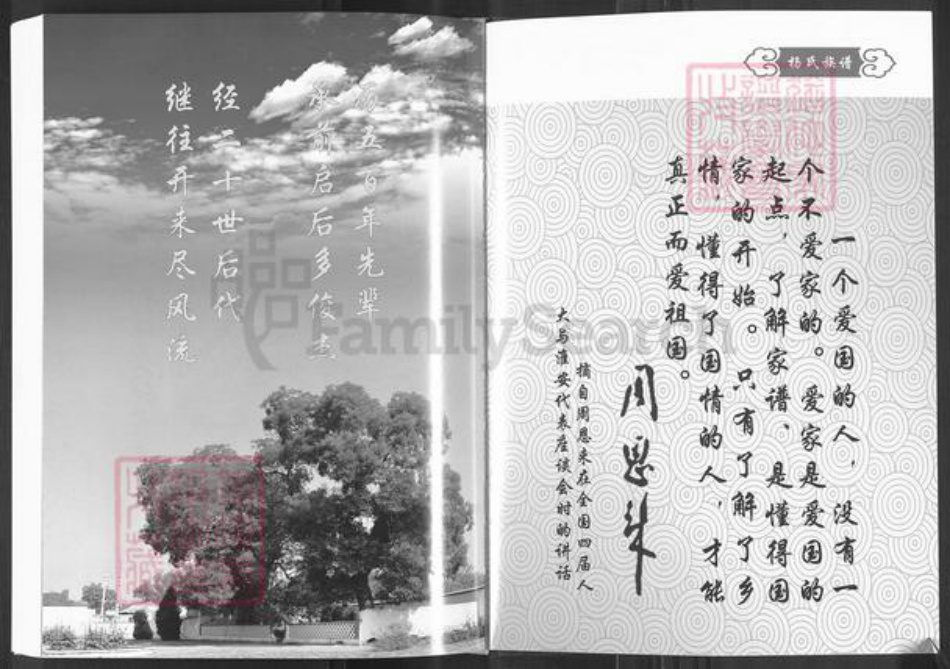 杨氏族谱
一个爱国的人，没有一
个不爱家的。爱家是爱国的
起点，了解家谱、是懂得国
家的开始。只有了解了乡
情，懂得了国情的人，才能
真正而爱祖国。
周恩来
摘自周恩来在全国四届人
大与淮安代表座谈会时的讲话
五百年先辈
承前启后多俊杰
经二十世后代
继往开来尽风流
FamilySearch